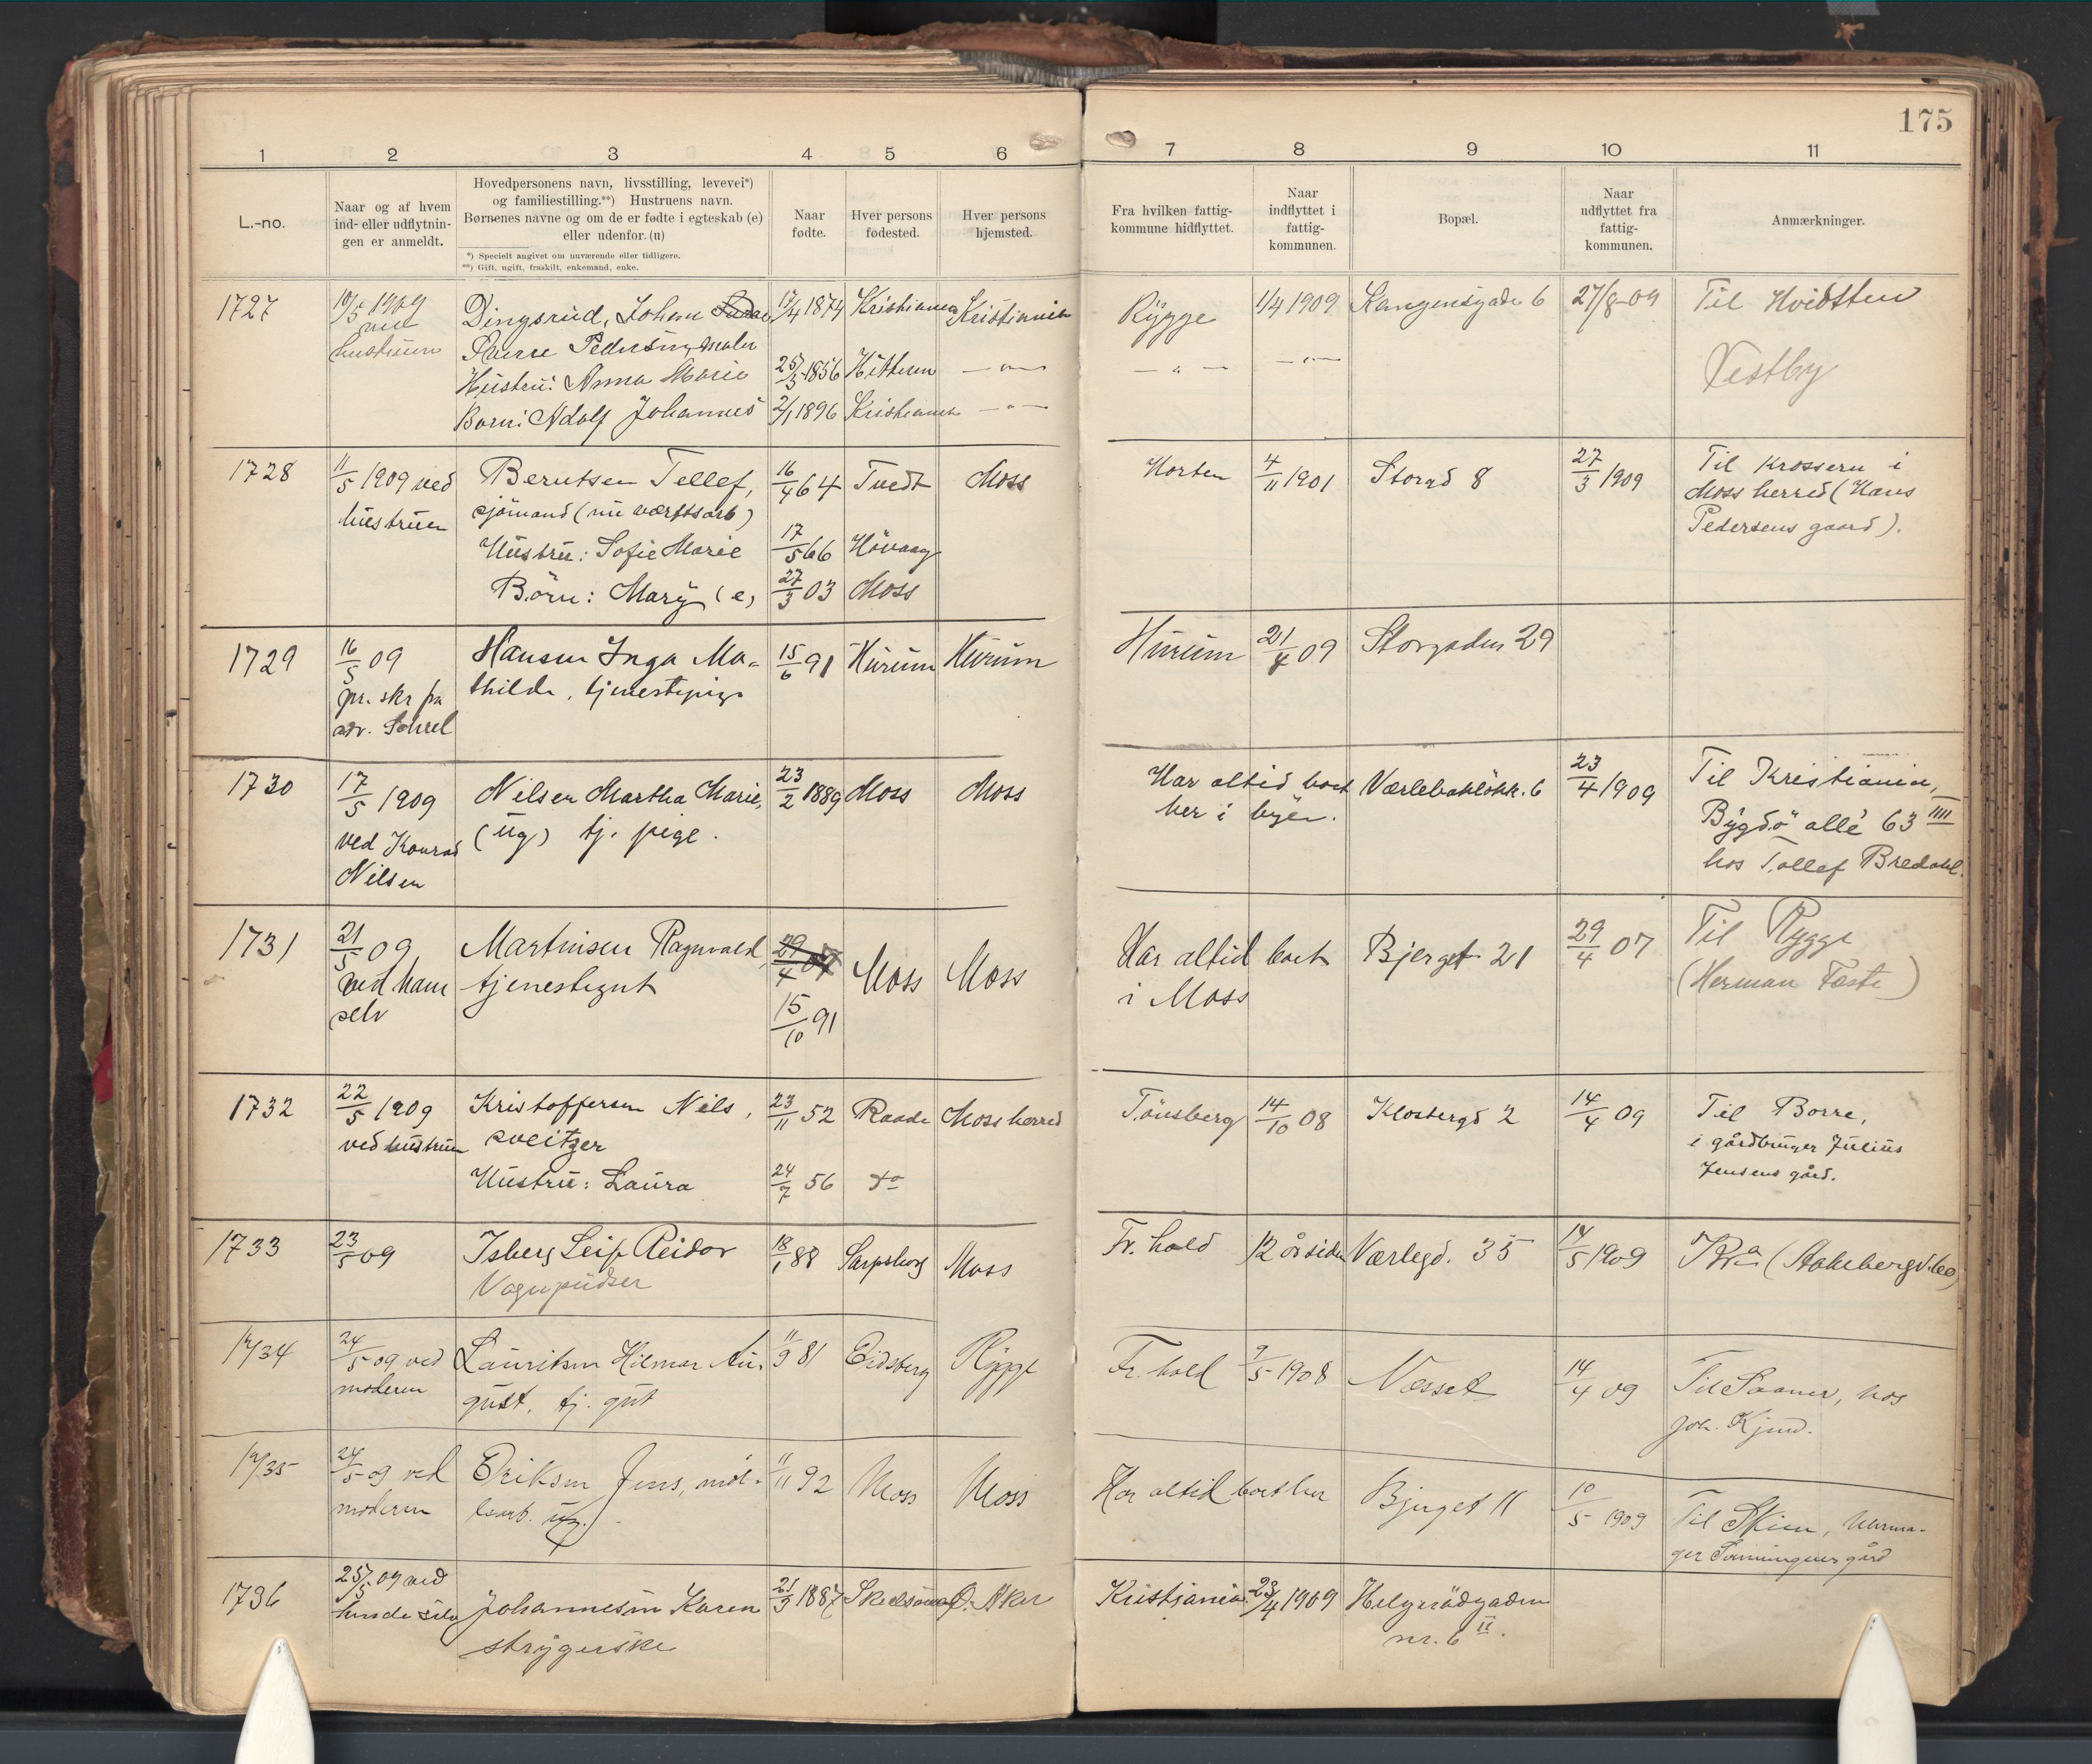 175
1 2 3 4 5 6 7 8 9 10 11
L.-no.
Naar og af hvem
ind- eller udflytnin-
gen er anmeldt.
Hovedpersonens navn, livsstilling, levevei*)
og familiestilling.**) Hustruens navn.
Børnenes navne og om de er fødte i egteskab (e)
eller udenfor. (u)
*) Specielt angivet om nuværende eller tidligere.
**) Gift, ugift, fraskilt, enkemand, enke.
Naar
fødte.
Hver persons
fødested.
Hver persons
hjemsted.
Fra hvilken fattig-
kommune hidflyttet.
Naar
indflyttet i
fattig-
kommunen.
Bopæl.
Naar
udflyttet fra
fattig-
kommunen.
Anmærkninger.
1727
10/5 1909
ved
hustruen
Dingsrud, Johan
Pedersen, maler
Hustru: Anna Marie
Barn: Adolf Johannes
17/4 1874
25/3 1856
2/1 1896
Kristiania
Hitteren
Kristiania
Kristiania
— " —
— " —
Rygge
— " —
1/4 1909
— " —
Kangensgaden 6
27/8-09
Til Hvidsten
Vestby
1728
11/5 1909 ved
hustruen
Berntsen Tellef,
sjömand (nu værftsarb)
Hustru: Sofie Marie
Börn: Mary (e)
16/4 64
17/5 66
27/3 03
Tvedt
Hövaag
Moss
Moss
Horten
4/11 1901
Storgd 8
27/3 1909
Til Krossern i
Moss herred (Hans
Pedersens gaard).
1729
16/5 09
pr. skr fra
Hansen Inga Ma-
thilde, tjenestepige
15/6 91
Hurum
Hurum
Hurum
21/4 09
Storgaden 29
1730
17/5 1909
ved Konrad
Nilsen
Nilsen Martha Marie,
(ug) tj. pige.
23/2 1889
Moss
Moss
Har altid boet
her i byen.
Værlebaklökk. 6
23/4 1909
Til Kristiania,
Bygdö allé 63 IIII
hos Tollef Bredahl.
1731
21/5 09
ved ham
selv
Martinsen Ragnvald,
tjenestegut
29/4 07
15/10 91
Moss
Moss
Har altid boet
i Moss
Bjerget 21
29/4 07
Til Rygge
(Herman Toste)
1732
22/5 1909
ved hustruen
Kristoffersen Nils,
sveitzer
Hustru: Laura
23/11 52
24/7 56
Raade
do
Moss herred
Tönsberg
14/10 08
Klostergd 2
14/4 09
Til Borre,
i gårdbruger Julius
Jensens gård.
1733
23/5 09
Isberg Leif Reidar
Vognpudser
18/1 88
Sarpsborg
Moss
Fr. hald
12 år siden
Værlegd. 35
14/5 1909
Kra (Stokebergd. 60)
1734
24/5 09 ved
moderen
Lauritsen Hilmar Au-
gust, tj. gut
11/9 81
Eidsberg
Rygge
Fr. hald
9/5 1908
Næsset
14/4 09
Til Saaner, hos
Joh. Kjend.
1735
24/5 09 ved
moderen
Eriksen Jens, möl-
learb. ug.
11/11 92
Moss
Moss
Har altid boet her
Bjerget 11
10/5 1909
Til Skien, Uhrma-
ger gård
1736
25/5 09 ved
hende selv
Johannesen Karen
strygerske
21/3 1887
Skedsmo
Ø. Aker
Kristiania
23/4 1909
Helgerödgaden
nr. 6 II.